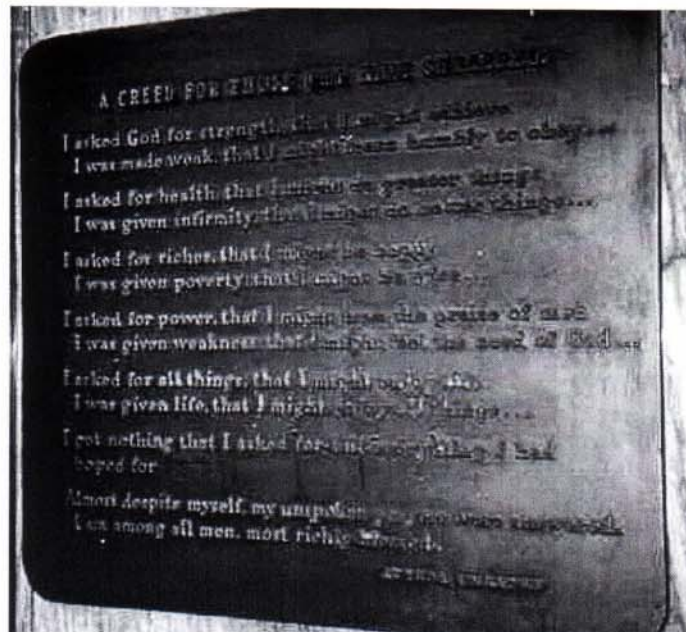 A CREED FOR THOSE WHO HAVE SUFFERED
I asked God for strength, that I might achieve
I was made weak, that I might learn humbly to obey...
I asked for health, that I might do greater things
I was given infirmity, that I might do better things...
I asked for riches, that I might be happy
I was given poverty, that I might be wise...
I asked for power, that I might have the praise of men
I was given weakness, that I might feel the need of God...
I asked for all things, that I might enjoy life
I was given life, that I might enjoy all things...
I got nothing that I asked for but everything I had
hoped for
Almost despite myself, my unspoken prayers were answered.
I am among all men, most richly blessed.